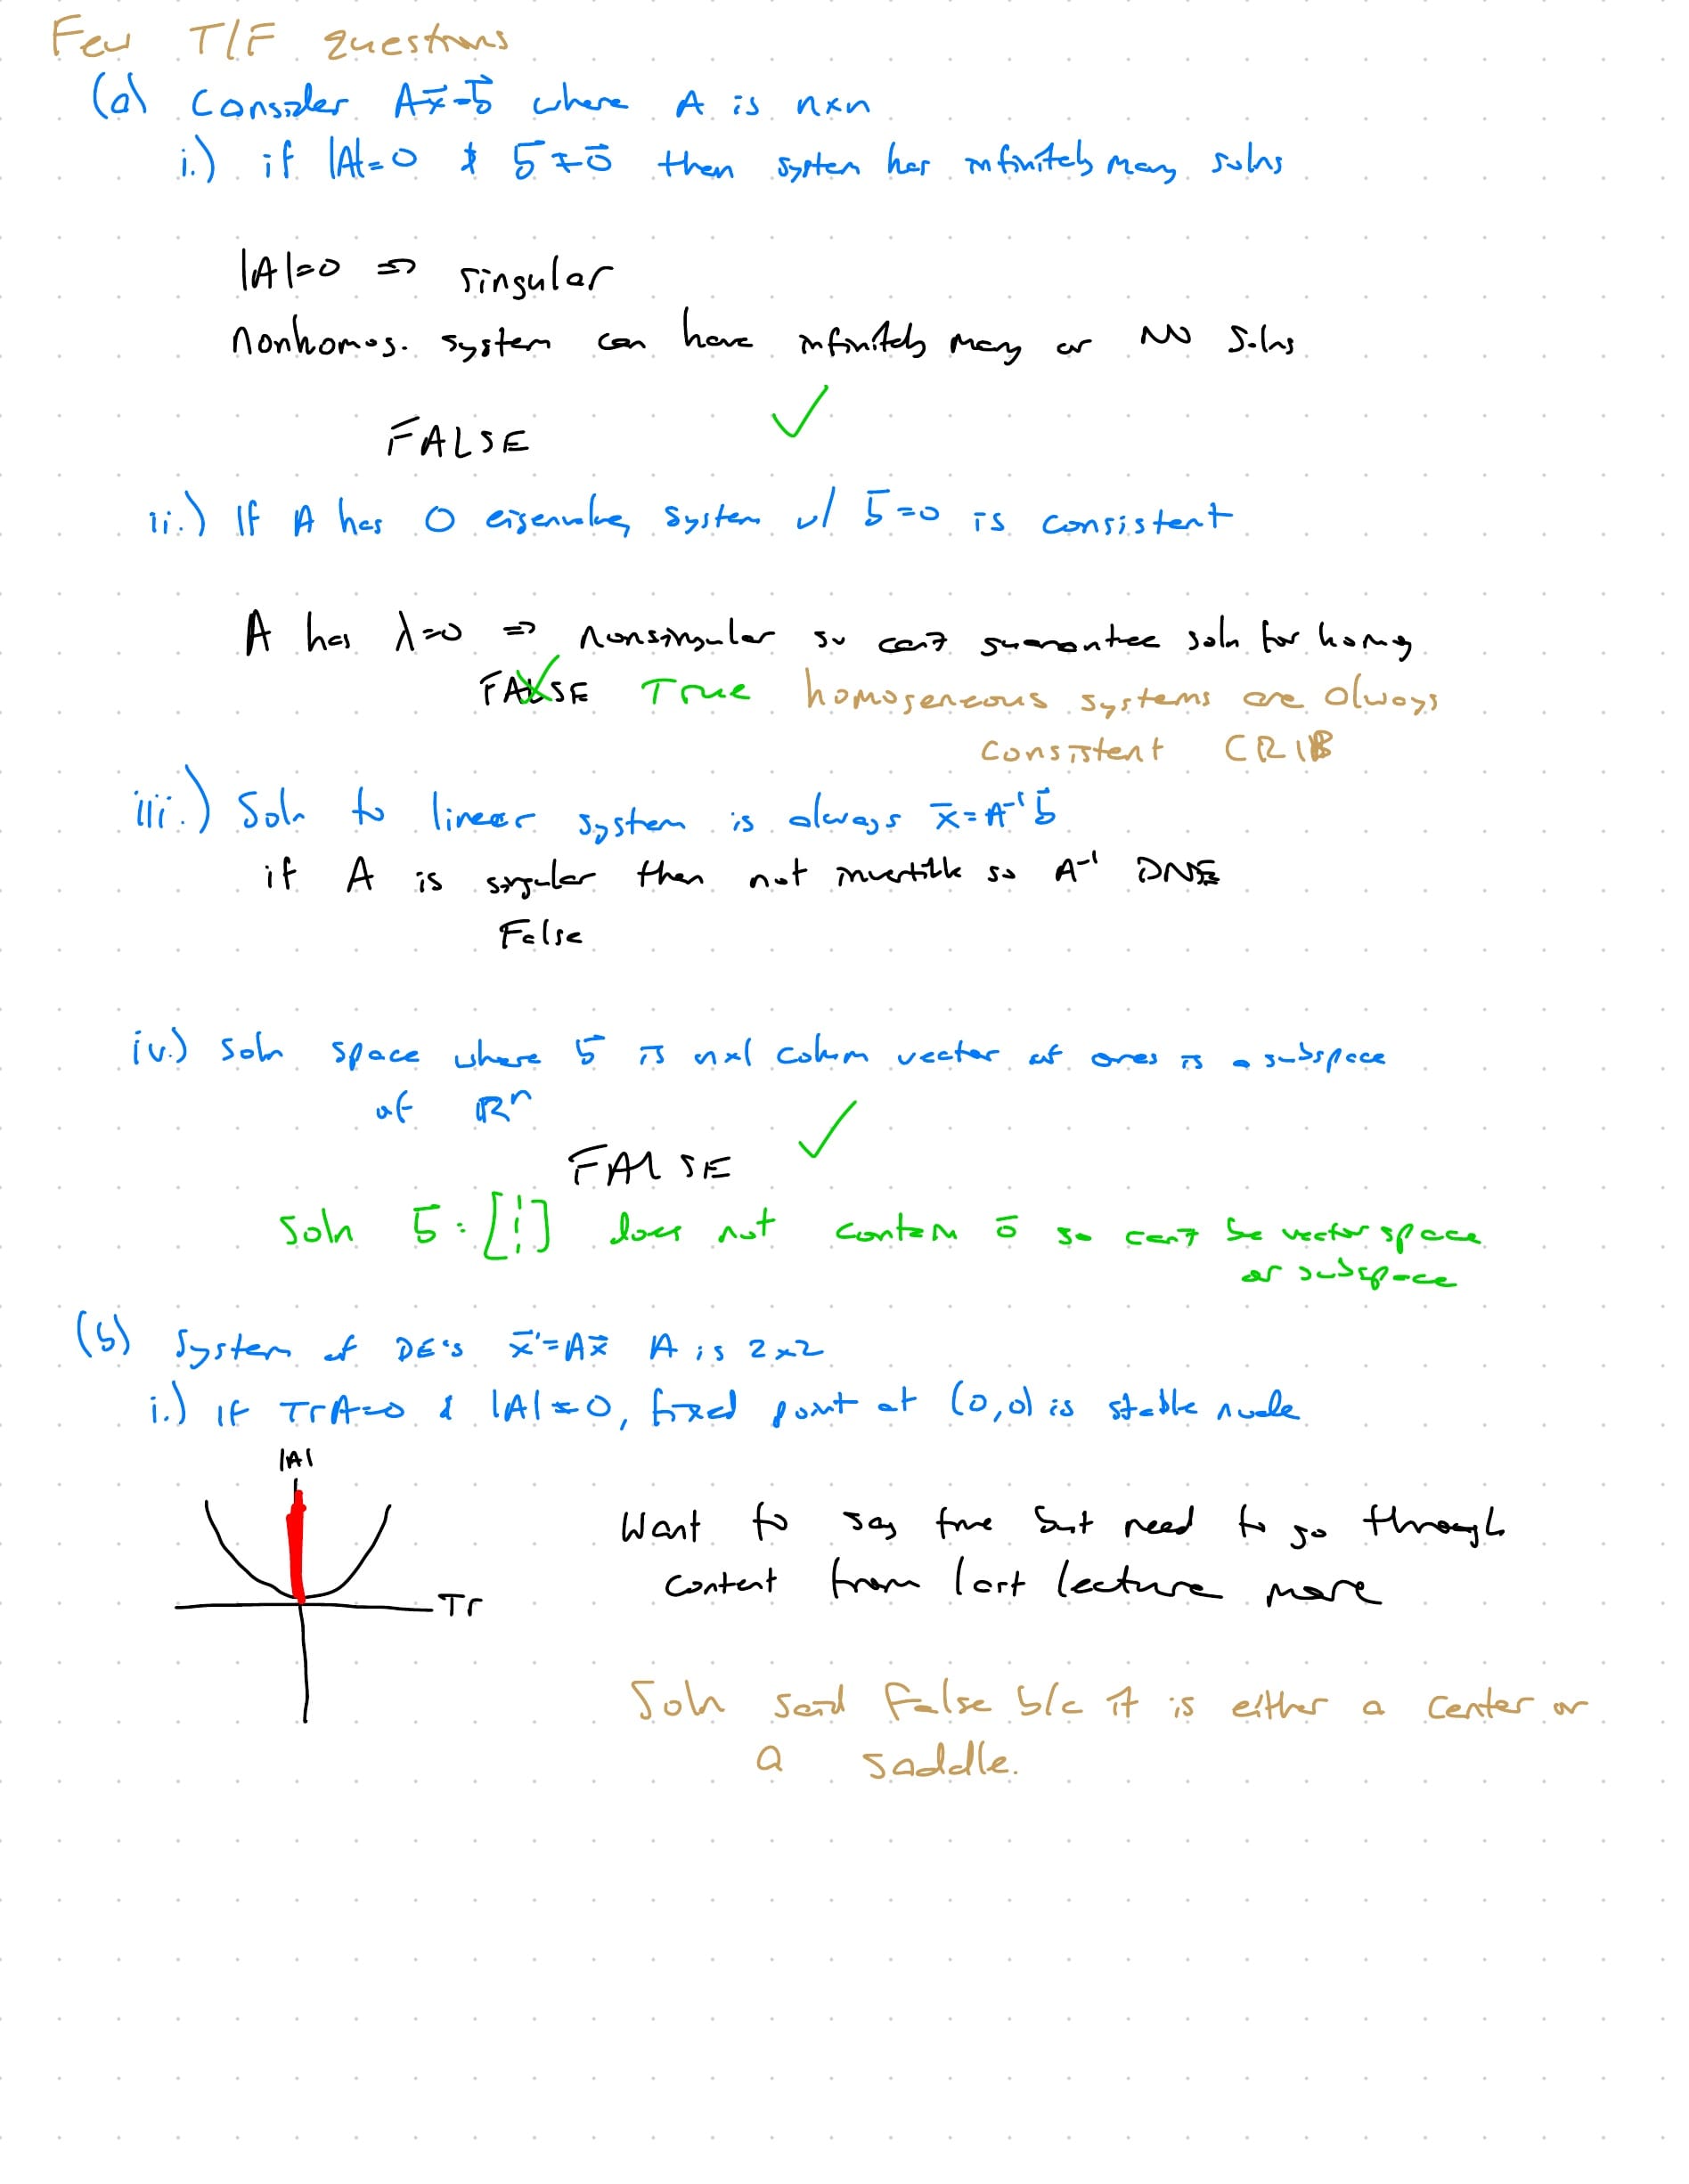 Few T/F questions
(a) Consider Ax⃗=b⃗ where A is nxn
i.) if |A|=0 & b̄≠ō then system has infinitely many solns
|A|=0 => singular
Nonhomog. system can have infinitely many or NO solns
FALSE ✓
ii.) If A has 0 eigenvalue, system w/ b̄=0 is consistent
A has λ=0 => nonsingular so can't guarantee soln for homog
FALSE True homogeneous systems are always
consistent CRIB
iii.) Soln to linear system is always x̄=A⁻¹b̄
if A is singular then not invertible so A⁻¹ DNE
False
iv.) soln space where b̄ is nx1 column vector of ones is a subspace
of ℝⁿ
FALSE ✓
soln b̄=[⋮] does not contain ō so can't be vector space
or subspace
(b) System of DE's x⃗'=Ax⃗ A is 2x2
i.) If TrA=0 & |A|≠0, fixed point at (0,0) is stable node
|A|
Tr
Want to say true but need to go through
content from last lecture more
Soln said False b/c it is either a center or
a saddle.